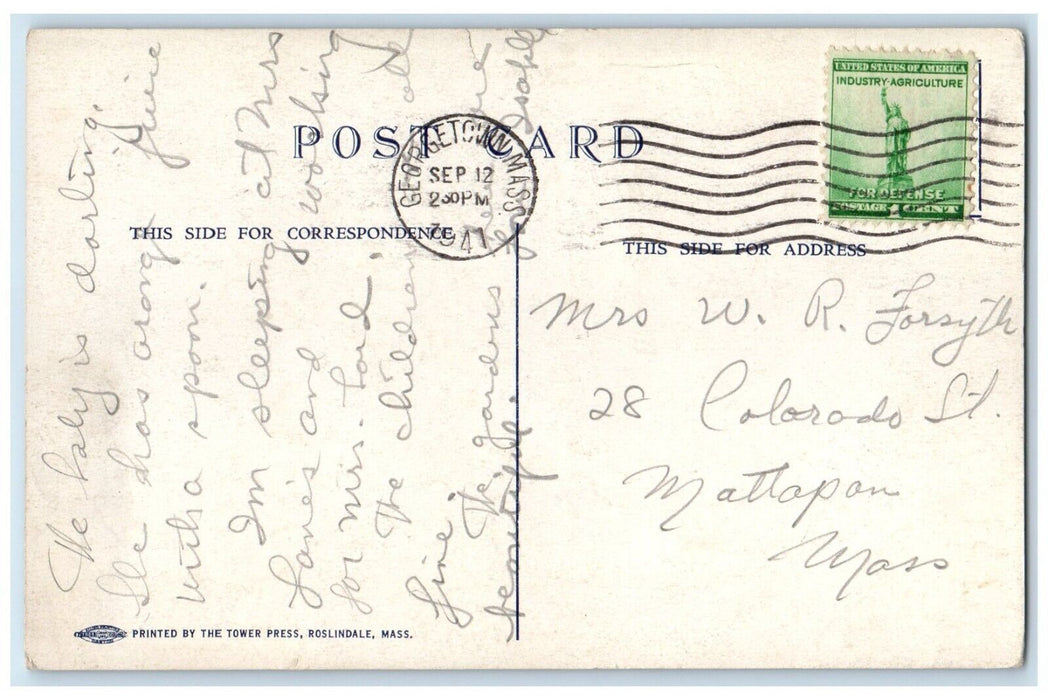 POST CARD
THIS SIDE FOR CORRESPONDENCE
THIS SIDE FOR ADDRESS
UNITED STATES OF AMERICA
INDUSTRY-AGRICULTURE
FOR DEFENSE
POSTAGE 1 CENT
GEORGETOWN, MASS.
SEP 12
2 30 PM
1941
The baby is darling.
She has orange juice
with a spoon.
Im sleeping at Mrs
and working
for mrs. Lord.
The children are
fine.
The gardens here are
beautiful.
Mrs W. R. Forsyth
28 Colorado St.
Mattapan
Mass
PRINTED BY THE TOWER PRESS, ROSLINDALE, MASS.